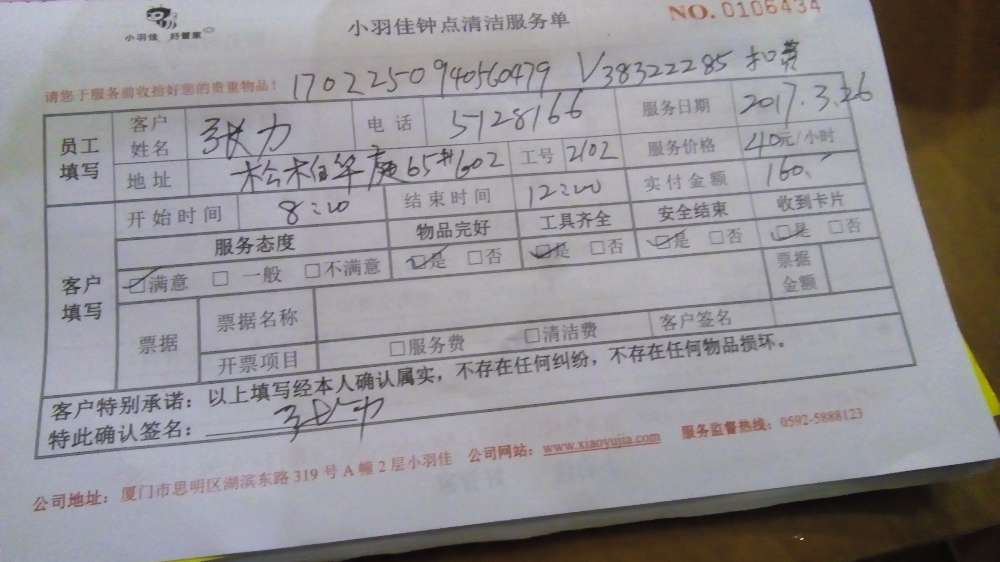 小羽佳 好管家
小羽佳钟点清洁服务单
NO. 0106434
请您于服务前收拾好您的贵重物品！ 1702250940560479 V38322285 扣费
员工填写 客户姓名 张力 电话 5128166 服务日期 2017.3.26
地址 松柏华庭65#602 工号 2102 服务价格 40元/小时
开始时间 8:00 结束时间 12:00 实付金额 160.-
客户填写 服务态度 物品完好 工具齐全 安全结束 收到卡片
☑满意 □ 一般 □不满意 ☑是 □否 ☑是 □否 ☑是 □否 ☑是 □否
票据 票据名称 票据金额
开票项目 □服务费 □清洁费 客户签名
客户特别承诺：以上填写经本人确认属实，不存在任何纠纷，不存在任何物品损坏。
特此确认签名： 张力
公司地址：厦门市思明区湖滨东路319号A幢2层小羽佳 公司网站：www.xiaoyujia.com 服务监督热线：0592-5888123